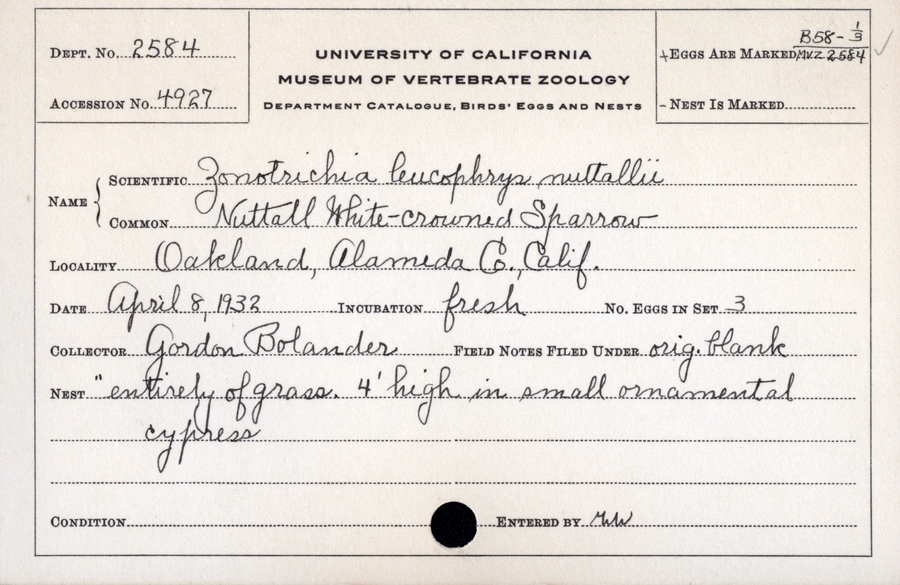 Dept. No. 2584
Accession No. 4927
UNIVERSITY OF CALIFORNIA
MUSEUM OF VERTEBRATE ZOOLOGY
Department Catalogue, Birds' Eggs and Nests
B58-1/3
+Eggs Are Marked MVZ 2584 ✓
- Nest Is Marked
Name
Scientific Zonotrichia leucophrys nuttallii
Common Nuttall White-crowned Sparrow
Locality Oakland, Alameda Co., Calif.
Date April 8, 1932 Incubation fresh No. Eggs in Set 3
Collector Gordon Bolander Field Notes Filed Under orig. blank
Nest "entirely of grass. 4' high in small ornamental
cypress
Condition Entered by